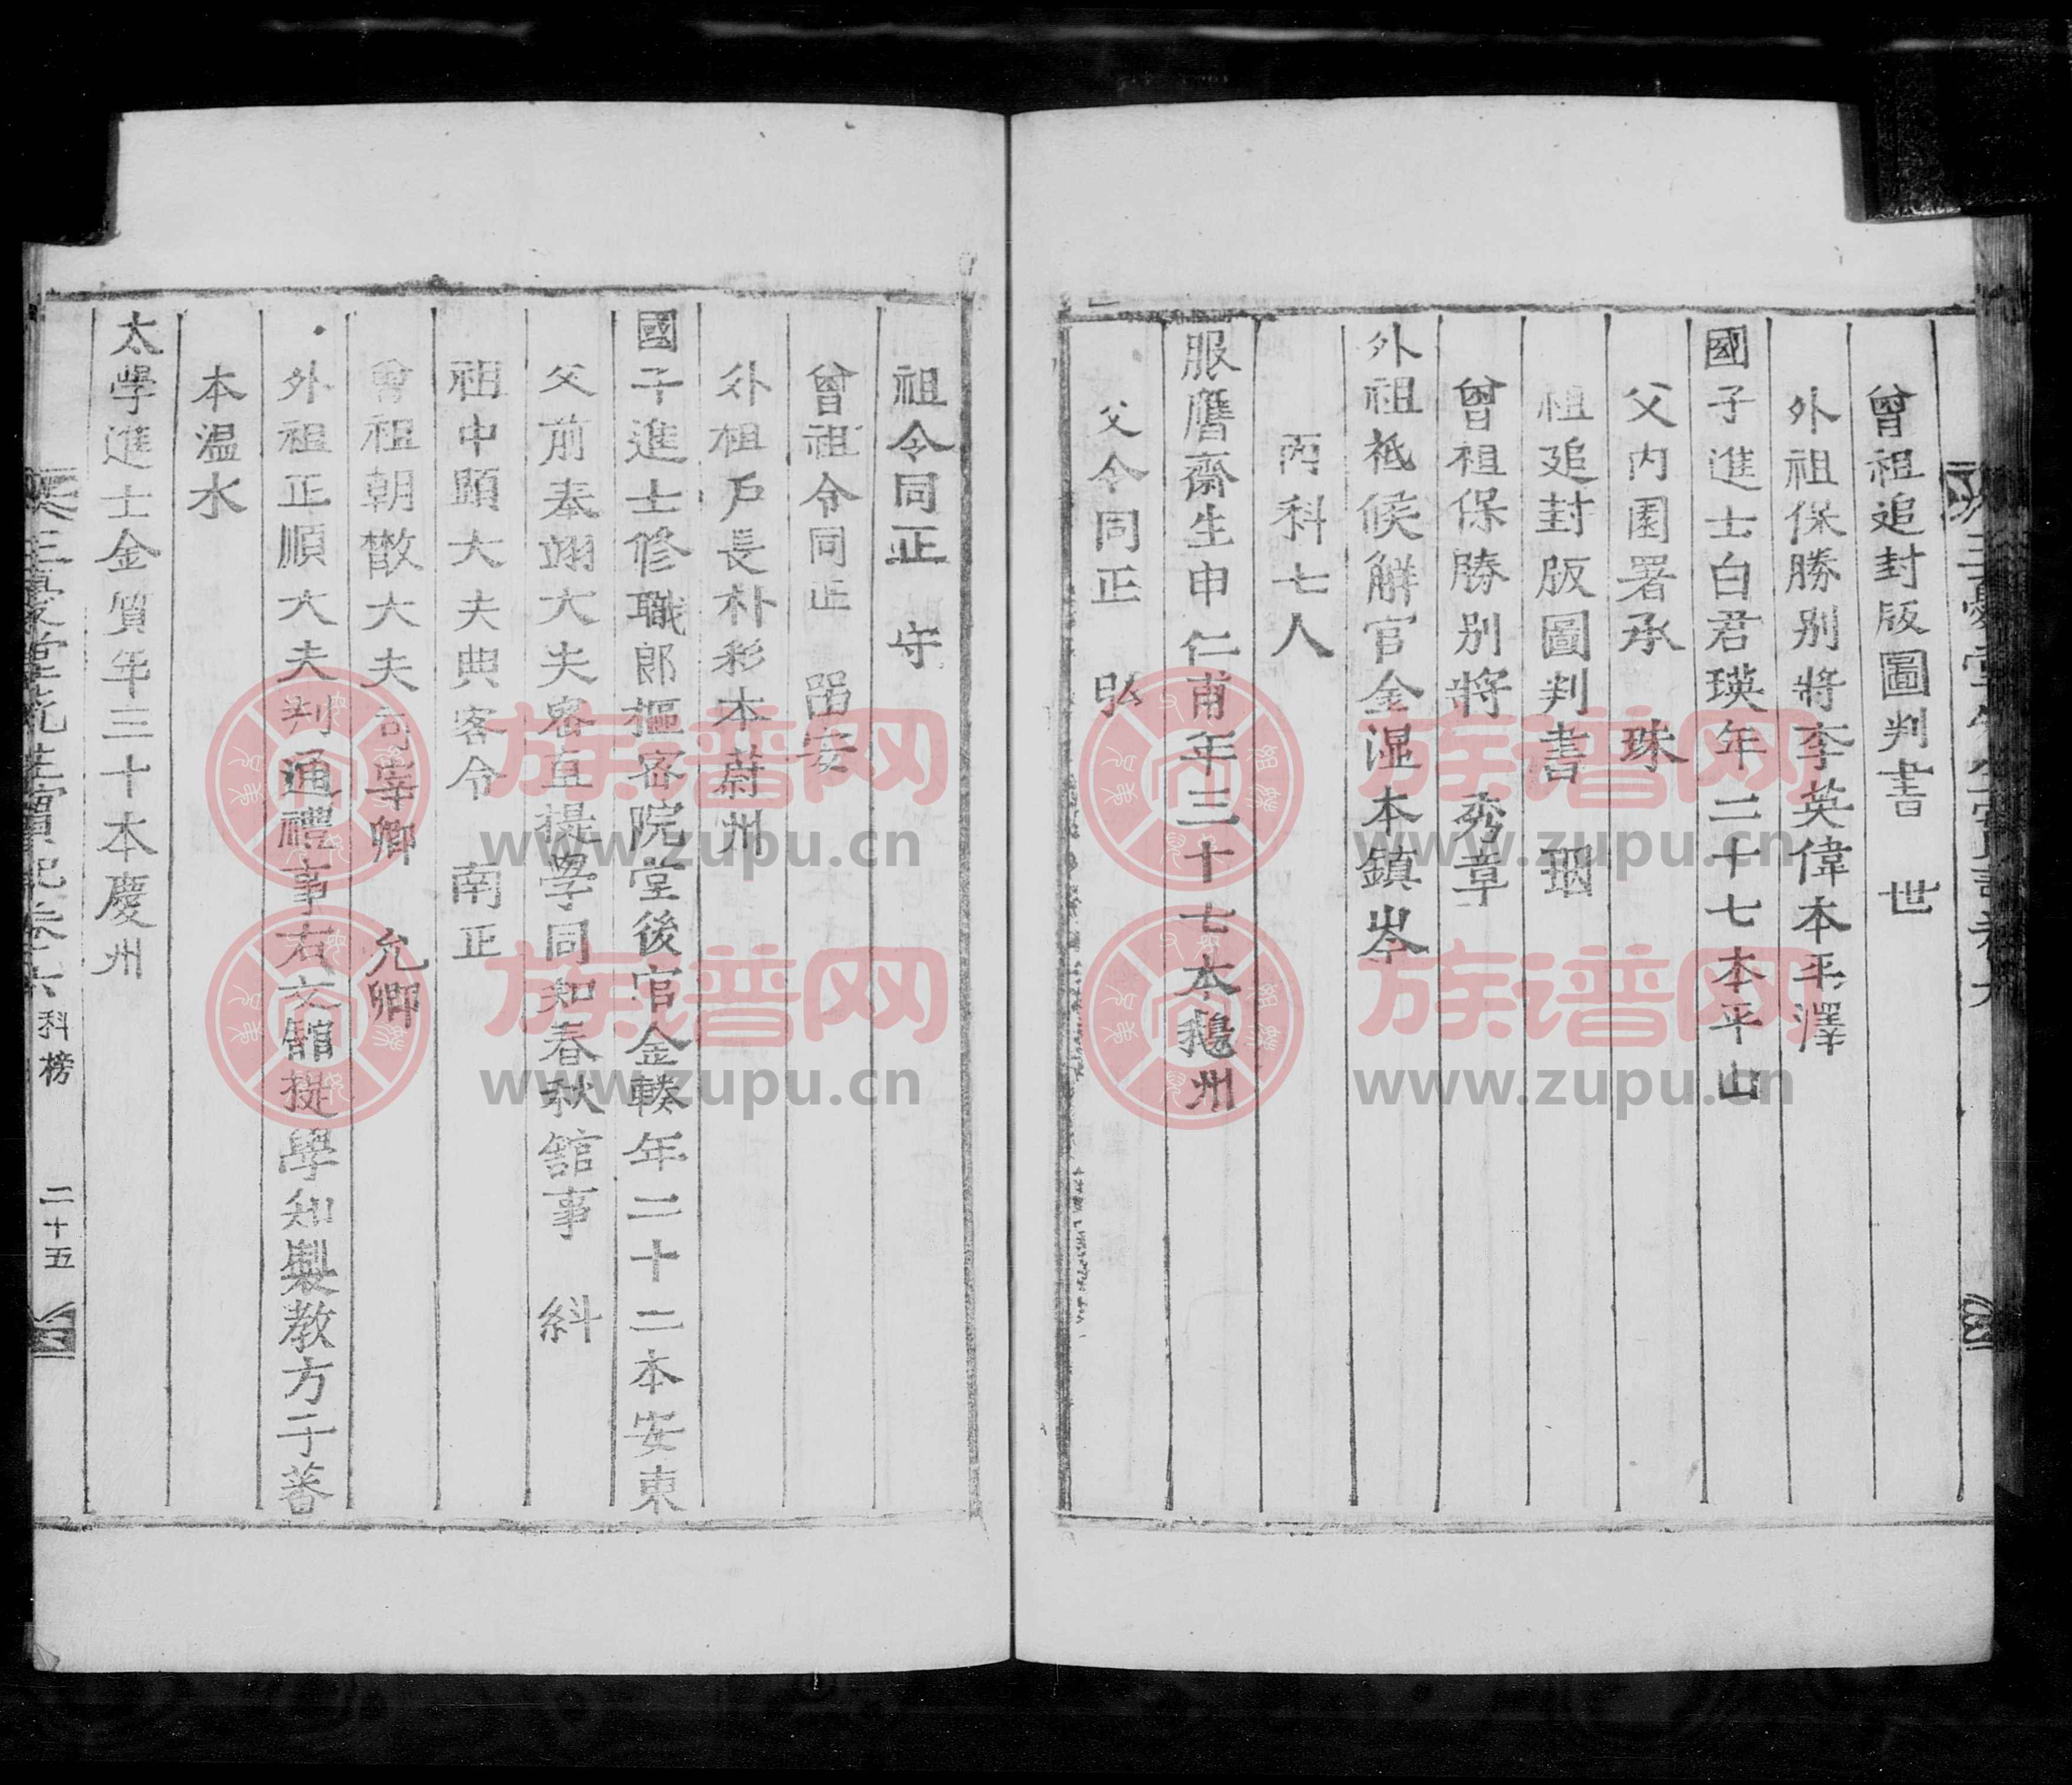 曾祖追封版圖判書　世
外祖保勝别將李英偉本平澤
國子進士白君瑛年二十七本平山
父内園署承　珠
祖追封版圖判書　珚
曾祖保勝别將　秀章
外祖祗候觧官金湿本鎮岑
丙科七人
服膺齋生申仁甫年三十七本鵝州
父令同正　弘
祖令同正　守
曾祖令同正　安
外祖户長朴彩本蔚州
國子進士修職郎樞密院堂後官金輳年二十二本安東
父前奉翊大夫密直提學同知春秋舘事　紏
祖中顯大夫典客令　南正
曾祖朝散大夫司宰卿　允卿
外祖正順大夫判通禮事右文舘提學知製教方于蕃
本温水
太學進士金質年三十本慶州
三憂堂先生實記卷之六　科榜　二十五
族谱网
www.zupu.cn
族谱网
www.zupu.cn
族谱网
www.zupu.cn
族谱网
www.zupu.cn